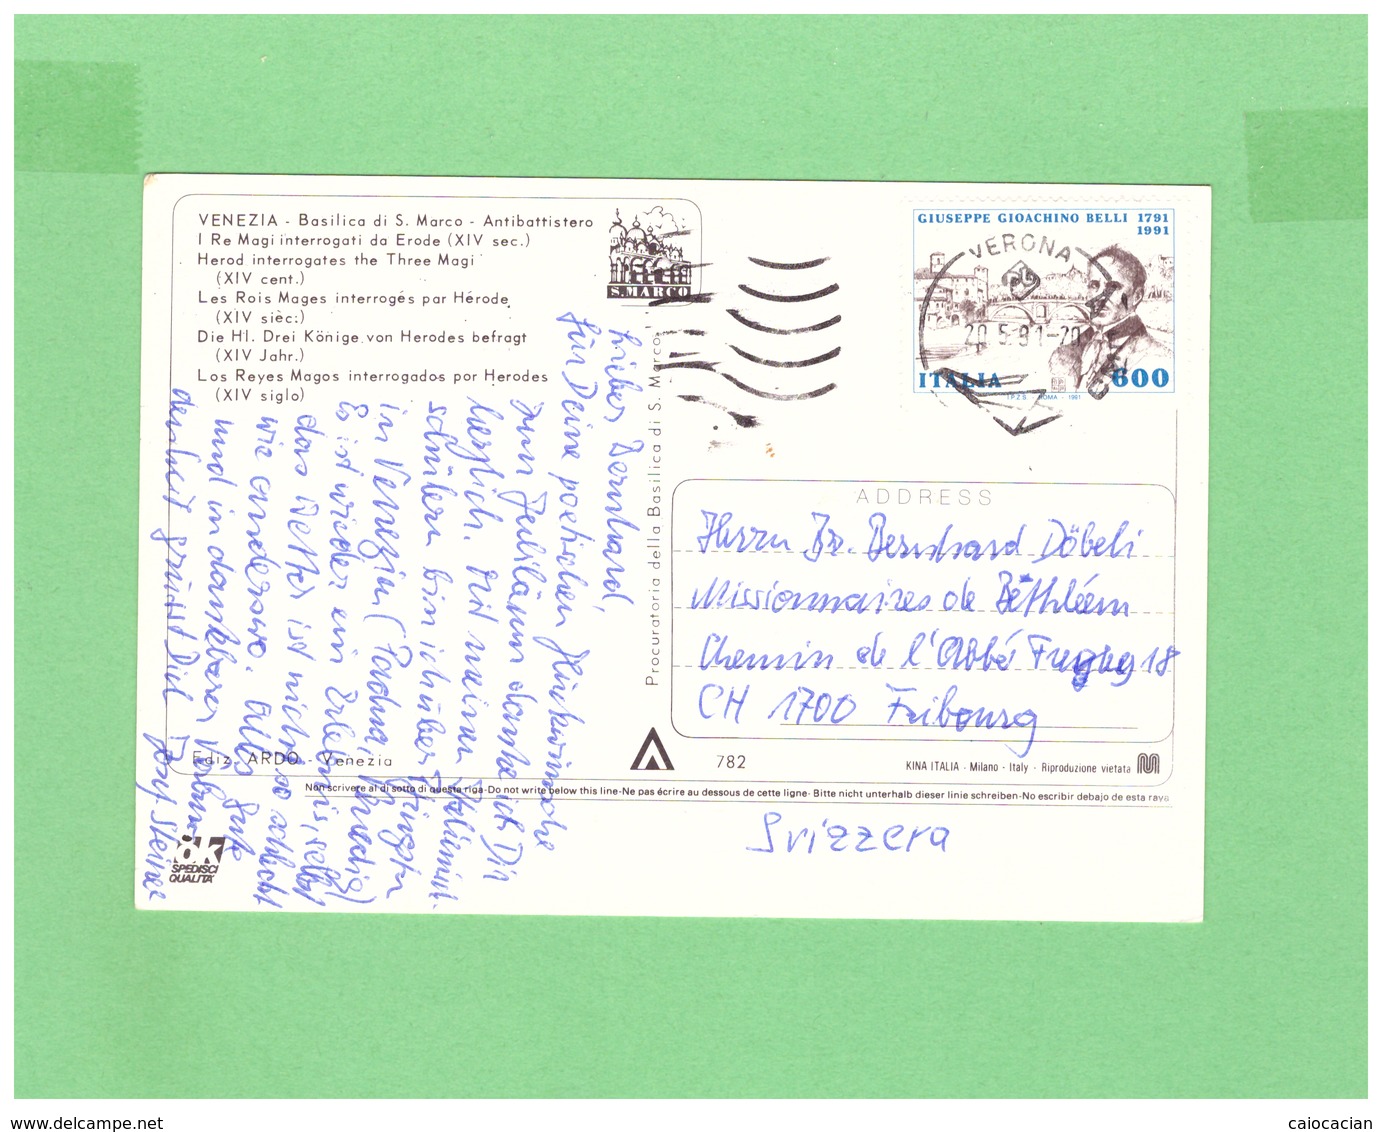 VENEZIA - Basilica di S. Marco - Antibattistero
I Re Magi interrogati da Erode (XIV sec.)
Herod interrogates the Three Magi
(XIV cent.)
Les Rois Mages interrogés par Hérode
(XIV sièc.)
Die Hl. Drei Könige von Herodes befragt
(XIV Jahr.)
Los Reyes Magos interrogados por Herodes
(XIV siglo)
S.MARCO
Lieber Bernhard,
für Deine poetischen Glückwünsche
zum Jubiläum danke ich Dir
herzlich. Mit meinen
schülern bin ich über Pfingsten
in Venezien (Padua,
Es ist wieder ein Erlebnis, selbst
das Wetter ist nicht so schlecht
wie anderswo. Alles Gute
und in dankbarer
denkst grüsst Dich Josef Steiner
Ediz. ARDO - Venezia
ök
SPEDISCI
QUALITÀ
Procuratoria della Basilica di S. Marco
GIUSEPPE GIOACHINO BELLI 1791
1991
VERONA
20.5.91-20
ITALIA
600
I.P.Z.S. ROMA - 1991
ADDRESS
Herrn Br. Bernhard Döbeli
Missionnaires de Béthléem
Chemin de l'Abbé Freeley 18
CH 1700 Fribourg
782
KINA ITALIA - Milano - Italy - Riproduzione vietata
Non scrivere al di sotto di questa riga-Do not write below this line-Ne pas écrire au dessous de cette ligne- Bitte nicht unterhalb dieser linie schreiben-No escribir debajo de esta raya
Svizzera
www.delcampe.net
caiocacian